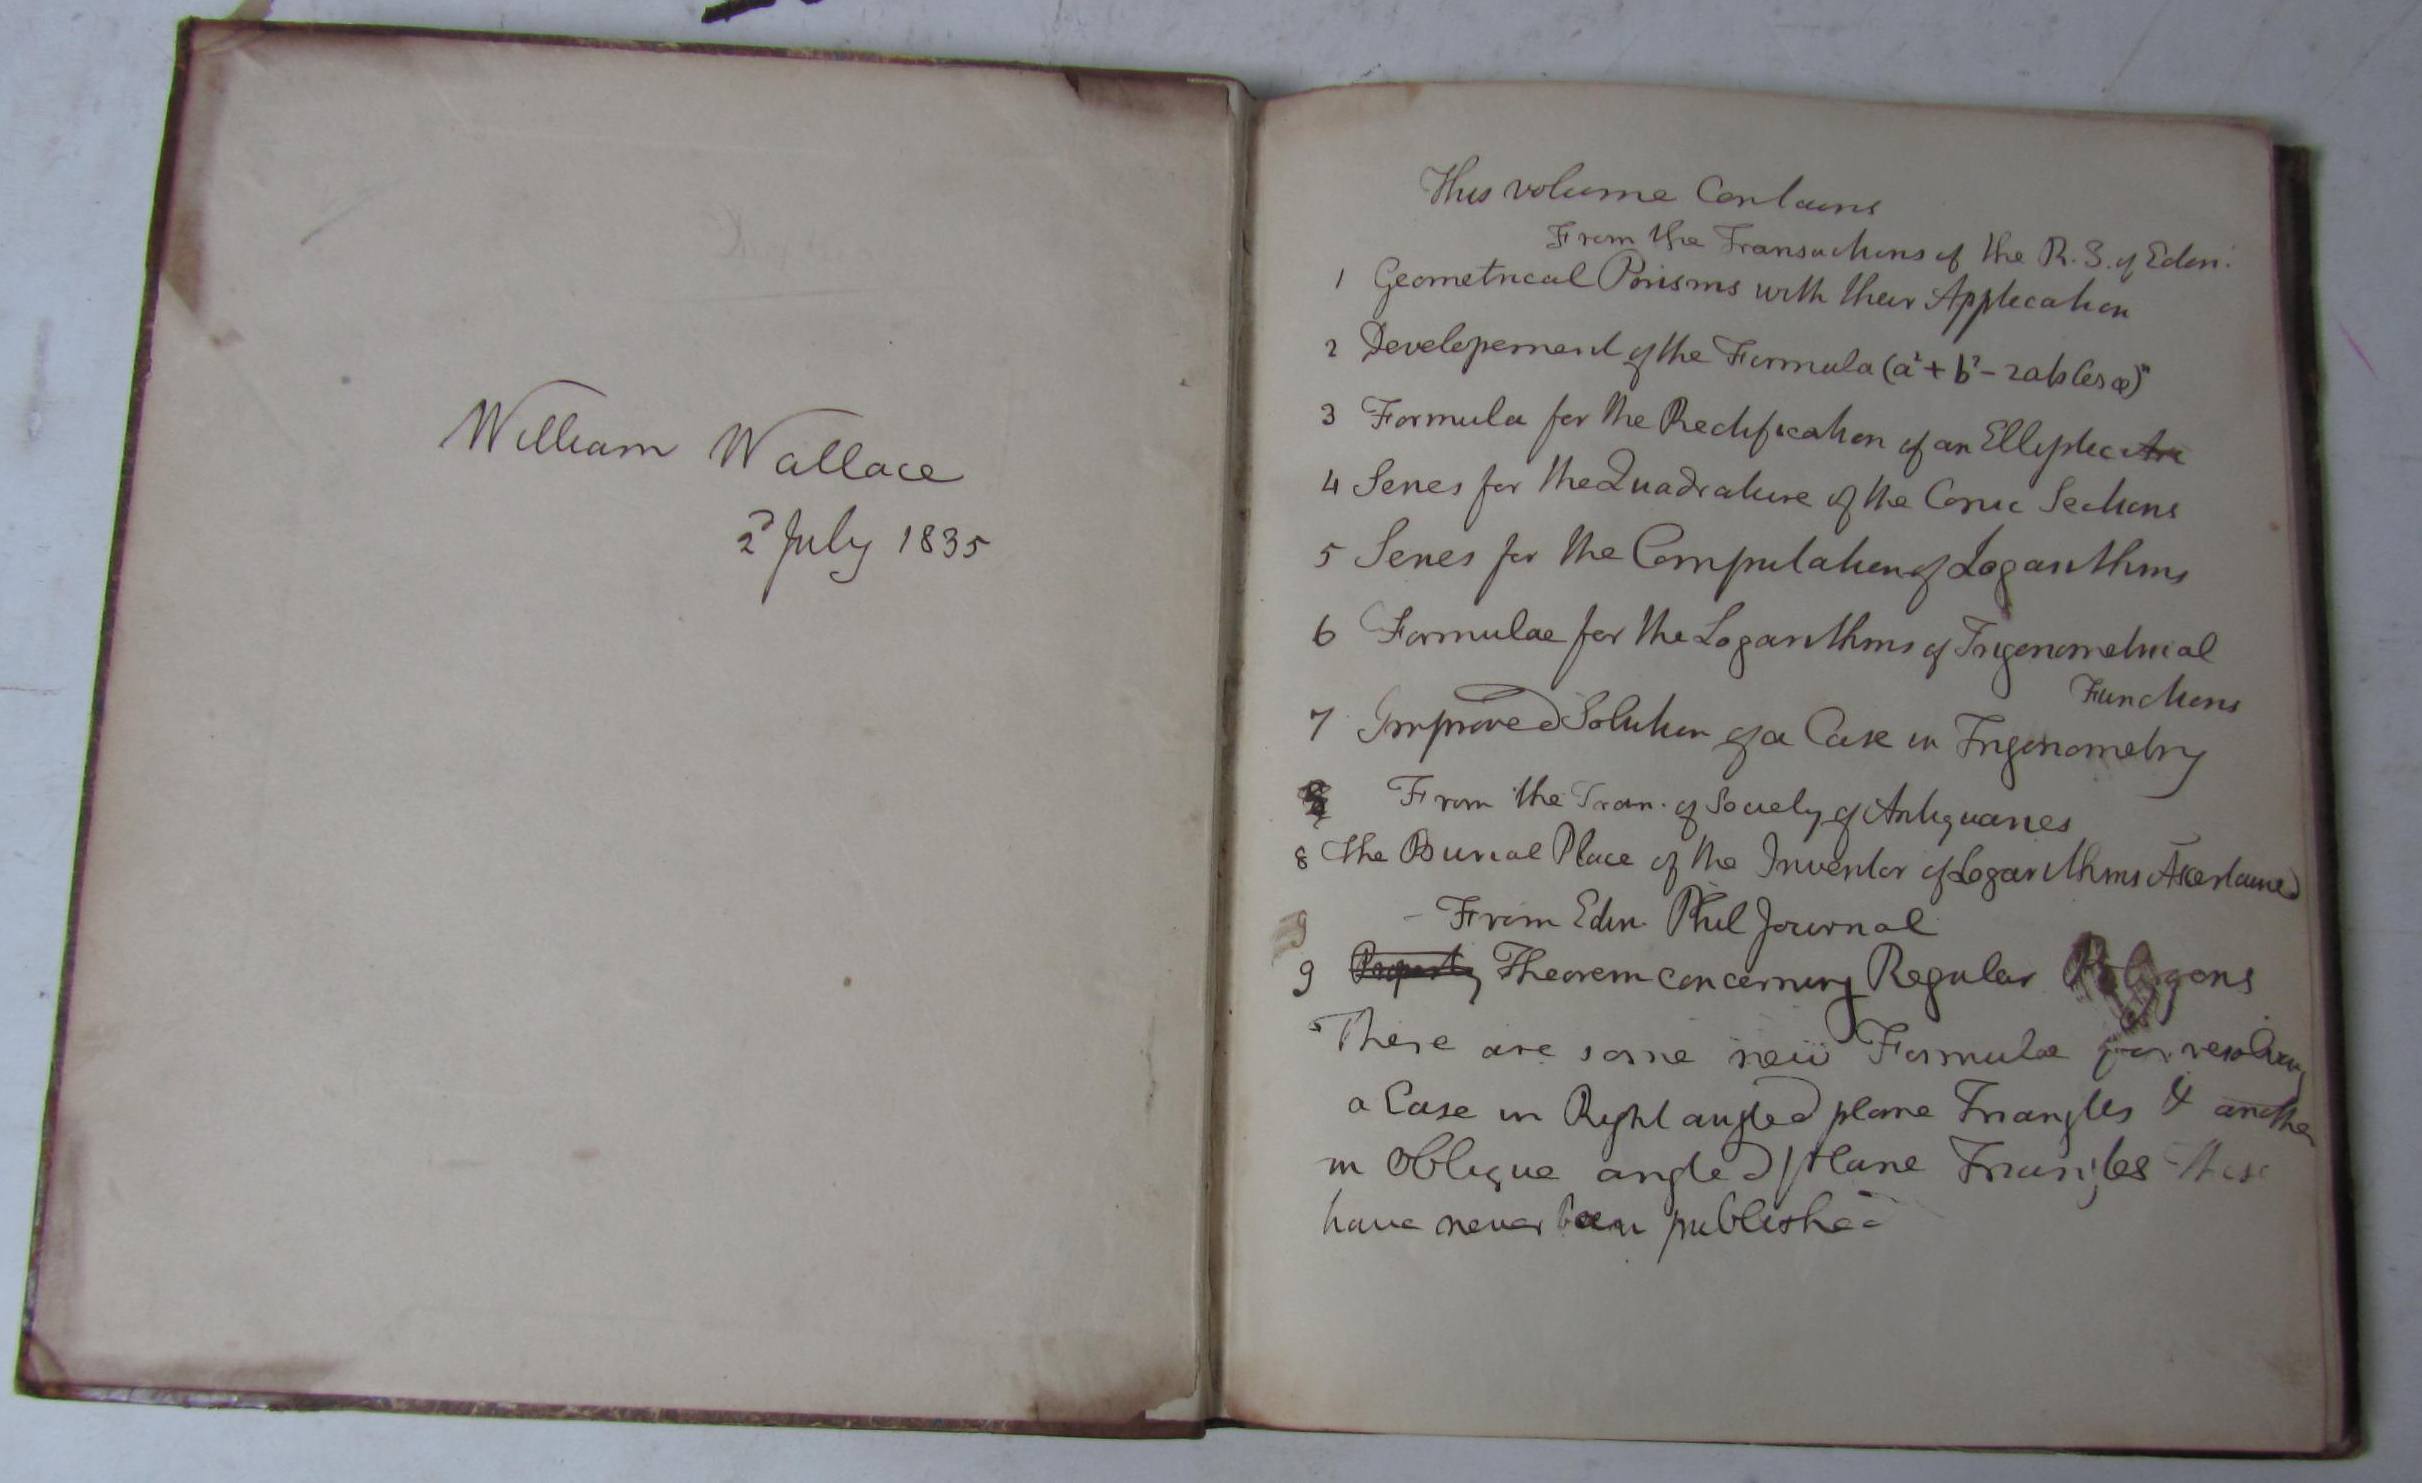 William Wallace
2d July 1835
This volume Contains
From the Transactions of the R. S. of Edin:
1 Geometrical Porisms with their Application
2 Developement of the Formula (a² + b² - 2ab Cos φ)ⁿ
3 Formula for the Rectification of an Elliptic Arc
4 Series for the Quadrature of the Conic Sections
5 Series for the Computation of Logarithms
6 Formulae for the Logarithms of Trigonometrical
Functions
7 Improved Solution of a Case in Trigonometry
From the Tran. of Society of Antiquaries
8 The Burial Place of the Inventor of Logarithms Ascertained
9 - From Edin. Phil Journal
9 Property Theorem concerning Regular Polygons
There are some new Formulae for resolving
a Case in Right angled plane Triangles & another
in Oblique angled plane Triangles these
have never been published